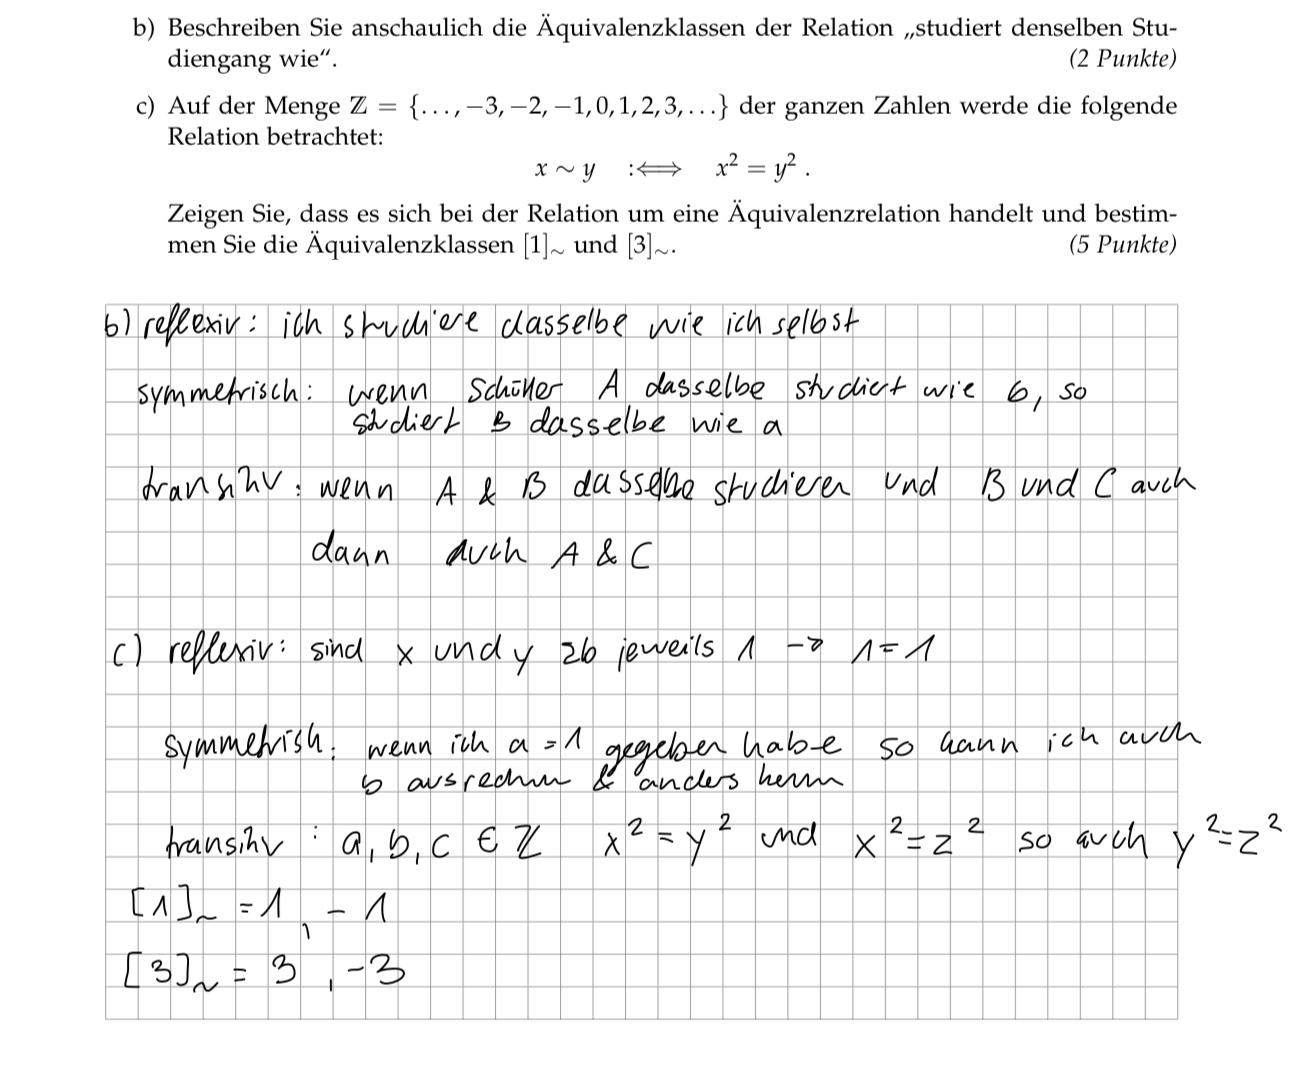 b) Beschreiben Sie anschaulich die Äquivalenzklassen der Relation „studiert denselben Stu-
diengang wie“. (2 Punkte)
c) Auf der Menge ℤ = {…, −3, −2, −1, 0, 1, 2, 3, …} der ganzen Zahlen werde die folgende
Relation betrachtet:
x ∼ y :⟺ x² = y² .
Zeigen Sie, dass es sich bei der Relation um eine Äquivalenzrelation handelt und bestim-
men Sie die Äquivalenzklassen [1]∼ und [3]∼. (5 Punkte)
b) reflexiv: ich studiere dasselbe wie ich selbst
symmetrisch: wenn Schüler A dasselbe studiert wie b, so
studiert B dasselbe wie a
transitiv: wenn A & B dasselbe studieren und B und C auch
dann auch A & C
c) reflexiv: sind x und y zb jeweils 1 → 1=1
symmetrish: wenn ich a=1 gegeben habe so kann ich auch
b ausrechnen & anders herum
transitiv: a, b, c ∈ ℤ x² = y² und x² = z² so auch y² = z²
[1]∼ = 1, -1
[3]∼ = 3, -3